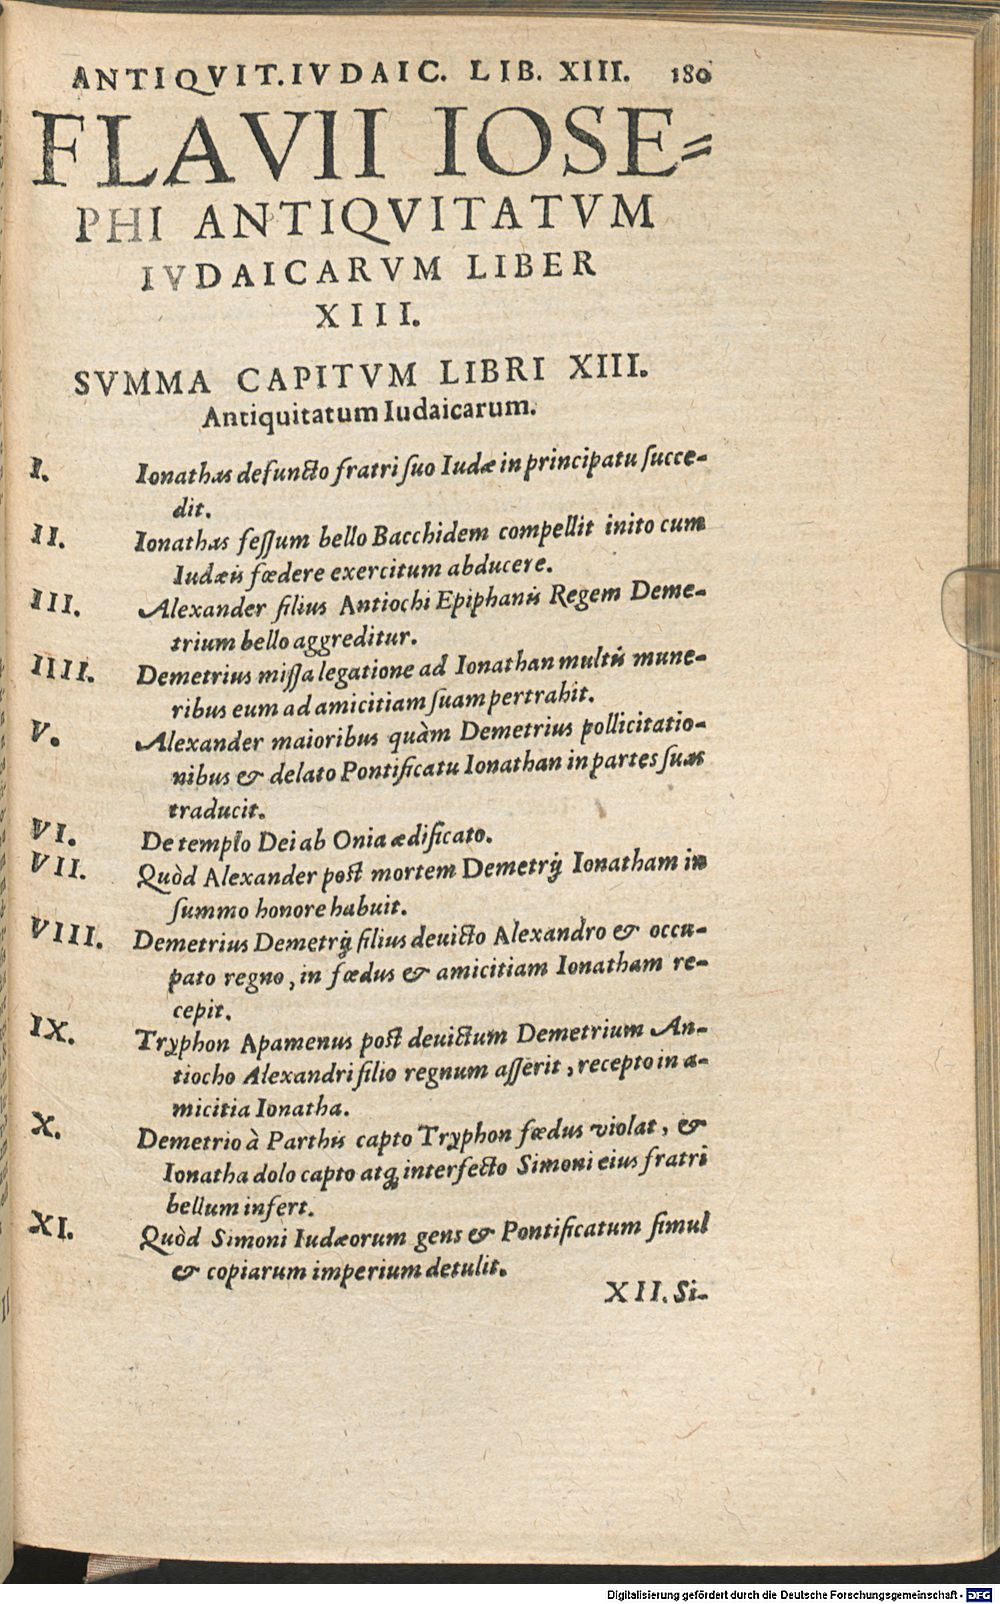 ANTIQVIT.IVDAIC. LIB. XIII. 180
FLAVII IOSE=
PHI ANTIQVITATVM
IVDAICARVM LIBER
XIII.
SVMMA CAPITVM LIBRI XIII.
Antiquitatum Iudaicarum.
I. Ionathas defuncto fratri ſuo Iudæ in principatu ſucce-
dit.
II. Ionathas feſſum bello Bacchidem compellit inito cum
Iudæis fœdere exercitum abducere.
III. Alexander filius Antiochi Epiphanis Regem Deme-
trium bello aggreditur.
IIII. Demetrius miſſa legatione ad Ionathan multis mune-
ribus eum ad amicitiam ſuam pertrahit.
V. Alexander maioribus quàm Demetrius pollicitatio-
nibus & delato Pontificatu Ionathan in partes ſuas
traducit.
VI. De templo Dei ab Onia ædificato.
VII. Quòd Alexander poſt mortem Demetrij Ionatham in
ſummo honore habuit.
VIII. Demetrius Demetrij filius deuicto Alexandro & occu-
pato regno, in fœdus & amicitiam Ionatham re-
cepit.
IX. Tryphon Apamenus poſt deuictum Demetrium An-
tiocho Alexandri filio regnum aſſerit, recepto in a-
micitia Ionatha.
X. Demetrio à Parthis capto Tryphon fœdus violat, &
Ionatha dolo capto atq; interfecto Simoni eius fratri
bellum infert.
XI. Quòd Simoni Iudæorum gens & Pontificatum ſimul
& copiarum imperium detulit.
XII. Si-
Digitalisierung gefördert durch die Deutsche Forschungsgemeinschaft - DFG